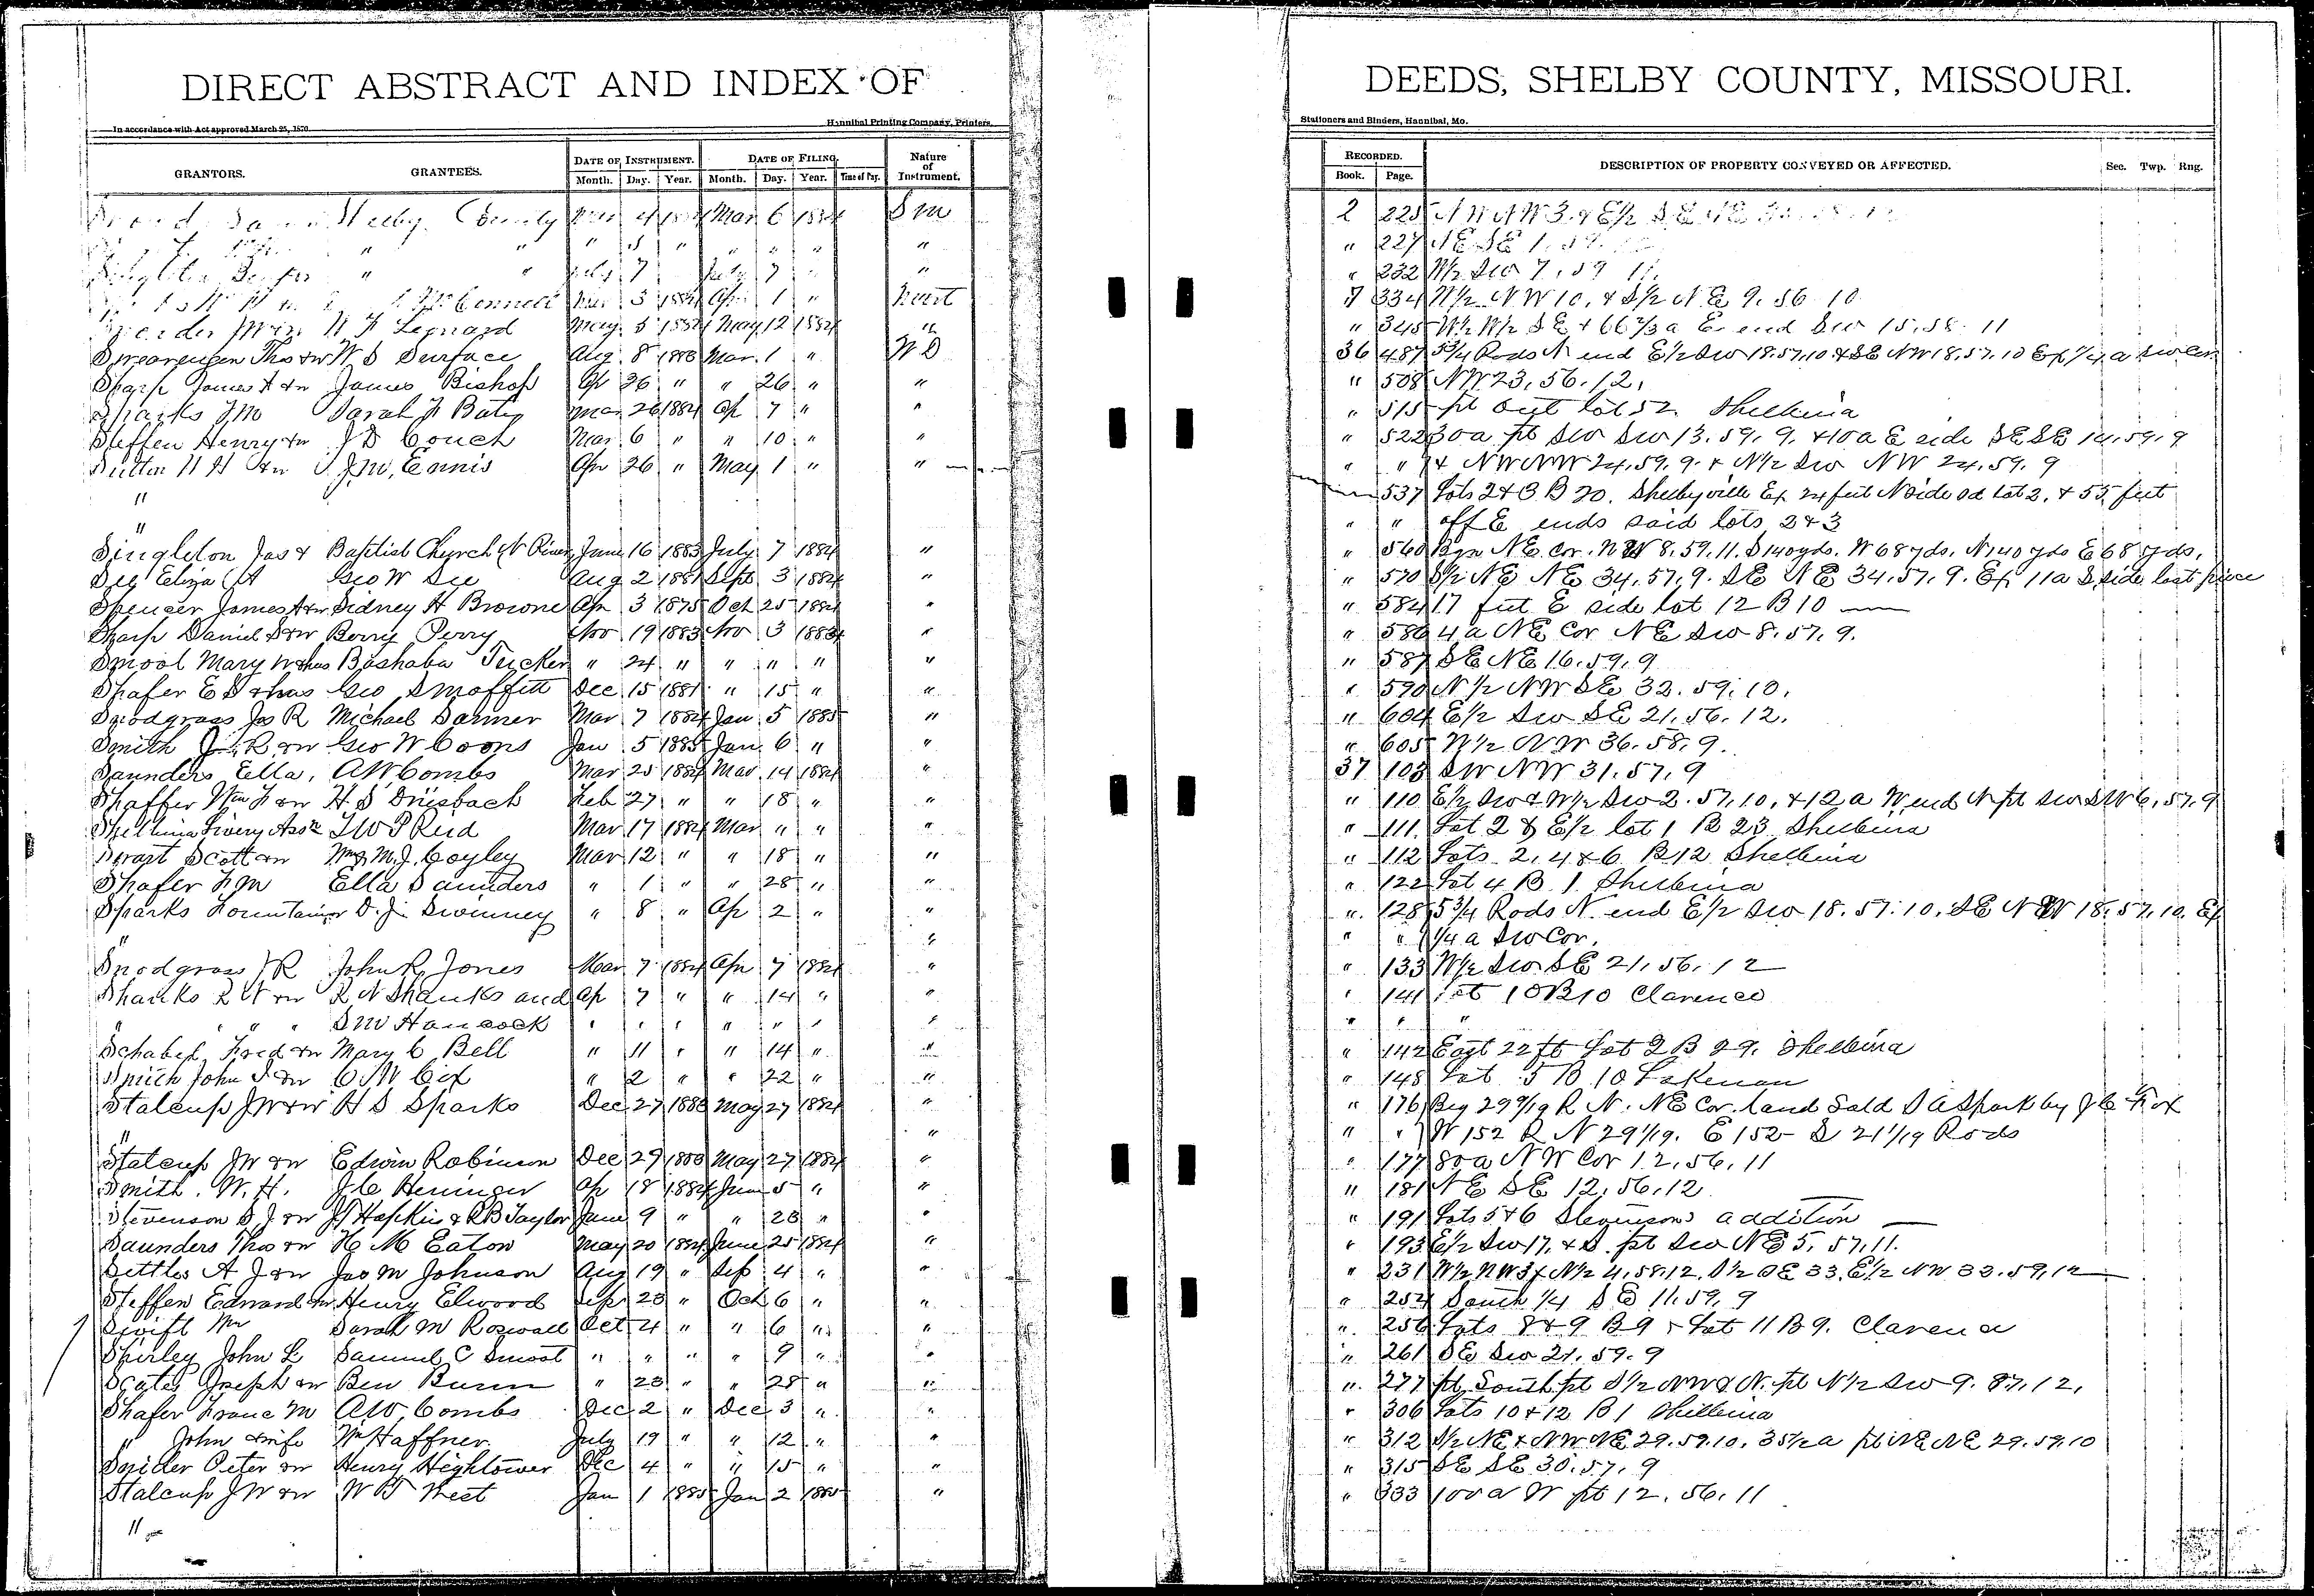 DIRECT ABSTRACT AND INDEX OF DEEDS, SHELBY COUNTY, MISSOURI.
In accordance with Act approved March 25, 1870. Hannibal Printing Company, Printers, Stationers and Binders, Hannibal, Mo.
GRANTORS. GRANTEES. DATE OF INSTRUMENT. DATE OF FILING. Nature of Instrument. RECORDED. DESCRIPTION OF PROPERTY CONVEYED OR AFFECTED. Sec. Twp. Rng.
Month. Day. Year. Month. Day. Year. Time of Day. Book. Page.
Shelby County Mar 4 1884 Mar 6 1884 S m 2 225 NW NW 3 & E½ SE
" " " 5 " " " " " " 227 NE SE 1. 59.
" " July 7 July 7 " " " 232 W½ SW 7. 59 11
3 1884 Apr 1 " 7 334 W½ NW 10, & S½ NE 9. 56 10
N F Leonard May 5 1884 May 12 1884 " " 345 W½ W½ SE & 66 2/3 a E end SW 15. 58. 11
Swearengen Thos &w W S Surface Aug 8 1883 Mar 1 " W D 36 487 5¾ Rods N end E½ SW 18.57.10 & SE NW 18.57.10 Ex ¼ a SW Cor
Sharp James A &w James Bishop Ap 26 " " 26 " " " 508 NW 23, 56. 12,
Sparks F M Sarah F Bates Mar 26 1884 Ap 7 " " " 515 pt out lot 52 Shelbina
Steffen Henry &w J D Couch Mar 6 " " 10 " " " 522 30a pt SW SW 13. 59. 9. & 10a E side SE SE 14. 59. 9
Sutton H H &w J. M. Ennis Apr 26 " May 1 " " " " & NW NW 24. 59. 9. & N½ SW NW 24. 59. 9
" 537 Lots 2 & 3 B 20. Shelbyville Ex 24 feet N side sd lot 2. & 55 feet
" " " off E ends said lots 2 & 3
Singleton Jas & Baptist Church June 16 1883 July 7 1884 " " 560 Bgn NE Cor. NW 8. 59. 11. S 140 yds. W 68 yds. N 140 yds E 68 yds.
See Eliza A Geo W See Aug 2 1881 Sept 3 1884 " " 570 S½ NE NE 34. 57. 9. SE NE 34. 57. 9. Ex 11a S side last piece
Spencer James A &w Sidney H Browne Apr 3 1875 Oct 25 1884 " " 584 17 feet E side lot 12 B 10
Sharp Daniel S &w Berry Perry Nov 19 1883 Nov 3 1884 " " 586 4 a NE Cor NE SW 8. 57. 9.
Smoot Mary W & hus Bashaba Tucker " 24 " " " " " " 587 SE NE 16. 59. 9
Shafer E S & hus Geo S Moffitt Dec 15 1881 " 15 " " " 590 N½ NW SE 32. 59. 10.
Snodgrass Jos R Michael Sanner Mar 7 1884 Jan 5 1885 " " 604 E½ SW SE 21. 56. 12.
Smith J. R &w Geo W Coons Jan 5 1885 Jan 6 " " " 605 W½ NW 36. 58. 9.
Saunders Ella, A W Combs Mar 25 1884 Mar 14 1884 " 37 103 SW NW 31. 57. 9
Shaffer Wm F &w H S Driesbach Feb 27 " " 18 " " " 110 E½ SW & W½ SW 2. 57. 10. & 12 a W end N pt SW SW 6. 57. 9
Shelbina Livery Assn T W P Reid Mar 17 1884 Mar " " " " 111. Lot 2 & E½ lot 1 B 23 Shelbina
Scott &w Wm & M. J. Coyley Mar 12 " " 18 " " " 112 Lots 2. 4 & 6 B 12 Shelbina
Shafer F M Ella Saunders " 1 " " 28 " " " 122 Lot 4 B 1 Shelbina
Sparks Fountain &w D. J. Swinney " 8 " Ap 2 " " " 128 5¾ Rods N. end E½ SW 18. 57. 10. SE NW 18. 57. 10. Ex
" " " " ¼ a SW Cor.
Snodgrass J R John R Jones Mar 7 1884 Apr 7 1884 " " 133 W½ SW SE 21. 56. 12
Shanks R N &w R N Shanks and Ap 7 " " 14 " " " 141 Lot 10 B 10 Clarence
" " " " S M Hancock " " " " " " " " " "
Schabel Fred &w Mary C Bell " 11 " " 14 " " " 142 East 22 ft Lot 2 B 29. Shelbina
Smith John &w " 2 " " 22 " " " 148 Lot 5 B 10 Lakenan
Stalcup J W &w H S Sparks Dec 27 1883 May 27 1884 " " 176 Beg 29 9/19 R N. NE Cor. land Sold S A Spark by J C Fox
" " " " W 152 R N 29 1/19. E 152 S 21 1/19 Rods
Stalcup J W &w Edwin Robinson Dec 29 1883 May 27 1884 " " 177 80a NW Cor 12. 56. 11
Smith. W. H. J C Heninger Ap 18 1884 June 5 " " " 181 NE SE 12. 56. 12
Stevenson S J &w Hopkins & R B Taylor June 9 " " 23 " " " 191 Lots 5 & 6 Stevensons addition
Saunders Thos &w H M Eaton May 20 1884 June 25 1884 " " 193 E½ SW 17. & S. pt SW NE 5. 57. 11.
Settles A J &w Jas M Johnson Aug 19 " Sep 4 " " " 231 W½ NW 3 & N½ 4. 58. 12. S½ SE 33. E½ NW 33. 59. 12
Steffen Edward &w Henry Elwood Sep 23 " Oct 6 " " " 254 South ¼ SE 11. 59. 9
Swift Wm Sarah M Roswall Oct 4 " " 6 " " " 256 Lots 8 & 9 B 9 & Lot 11 B 9. Clarence
Shirley John L Samuel C Smoot " " " " 9 " " " 261 SE SW 21. 59. 9
Scates Joseph &w Ben Bunn " 23 " " 28 " " " 277 pt South pt S½ NW & N. pt N½ SW 9. 57. 12.
Shafer Franc M A W Combs Dec 2 " Dec 3 " " " 306 Lots 10 & 12 B 1 Shelbina
" John & wife Wm Haffner July 19 " " 12 " " " 312 S½ NE & NW NE 29. 59. 10. 35½ a pt NE NE 29. 59. 10
Snider Peter &w Henry Hightower Dec 4 " " 15 " " " 315 SE SE 30. 57. 9
Stalcup J W &w W T Jan 1 1885 Jan 2 1885 " " 333 100 a W pt 12. 56. 11
"